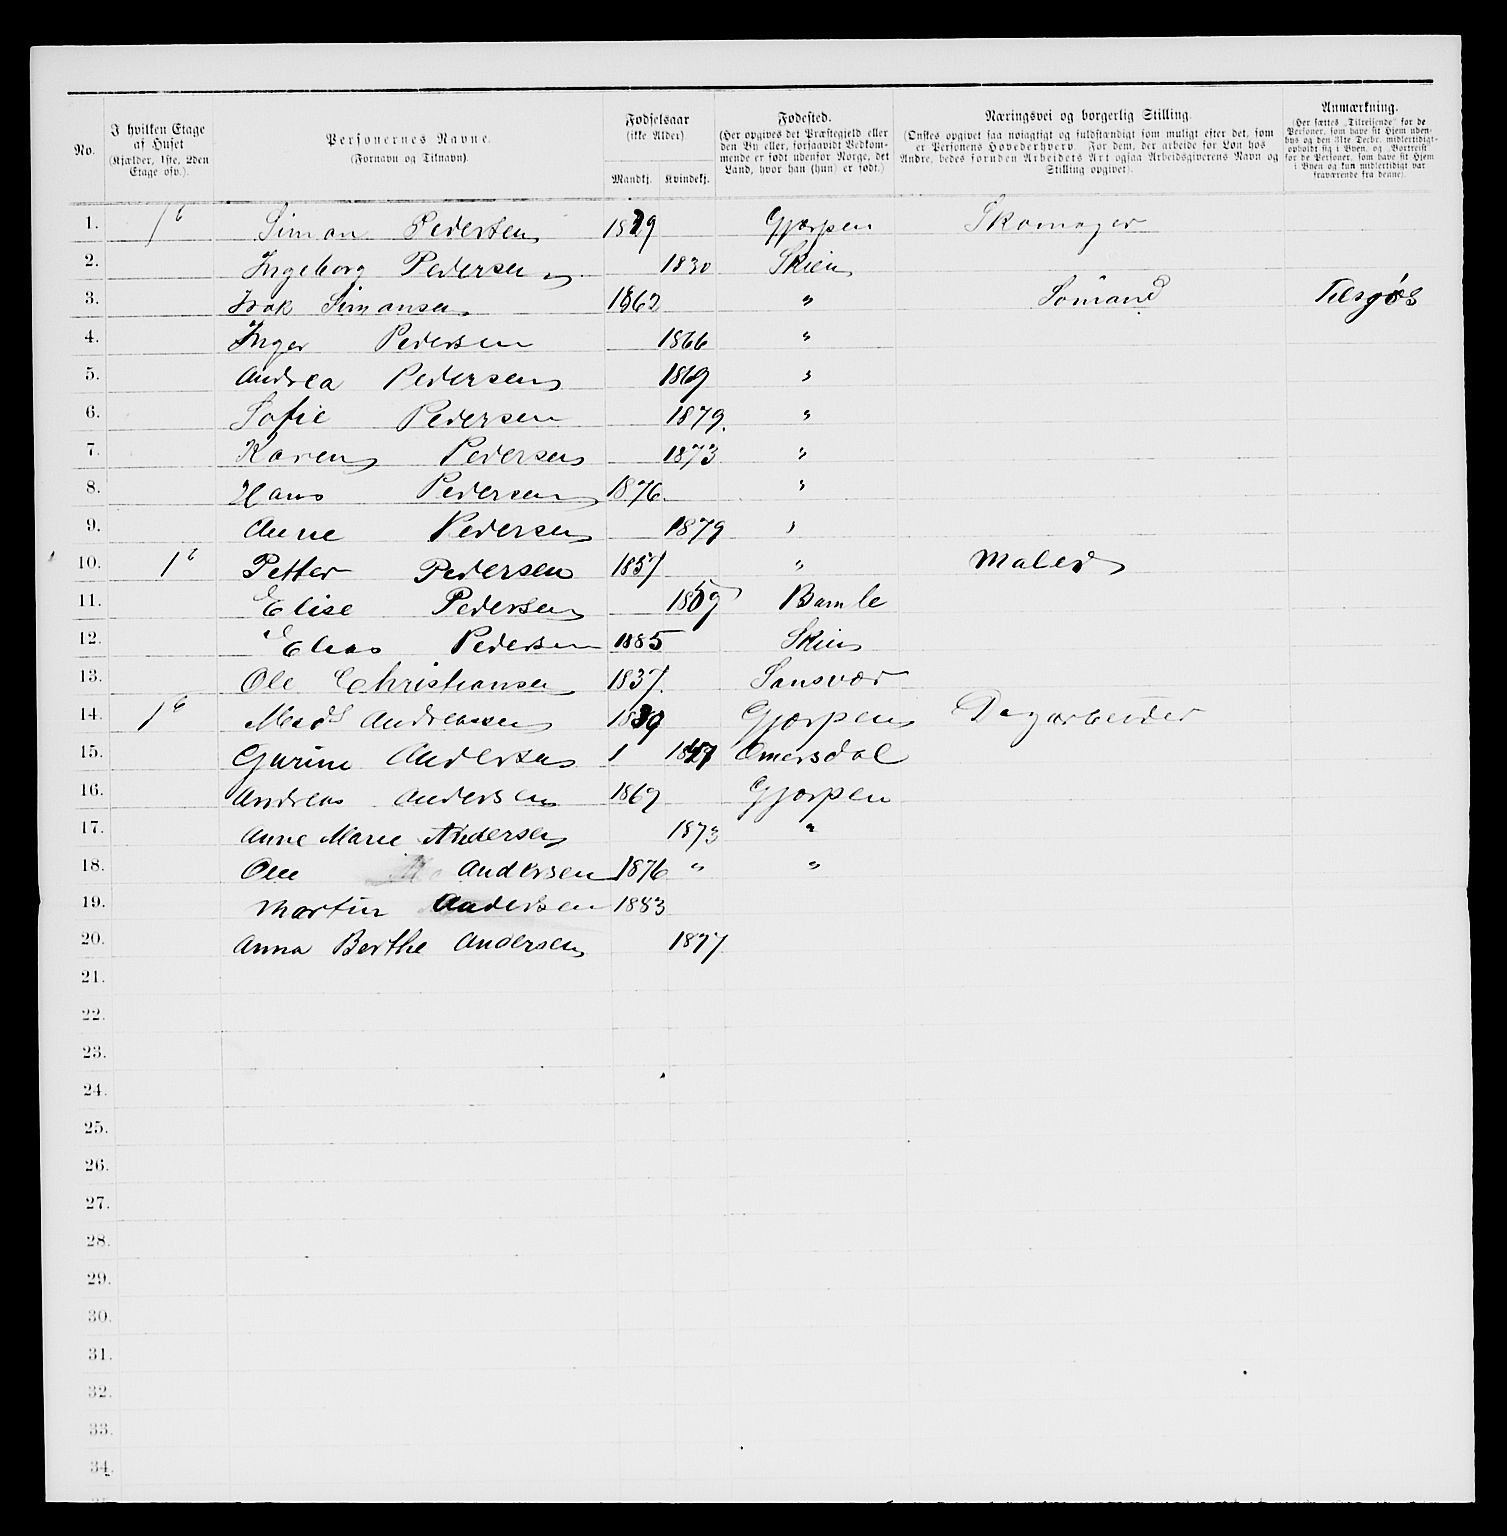 No.
I hvilken Etage af Huset (Kjælder, 1ste, 2den Etage osv.).
Personernes Navne. (Fornavn og Tilnavn).
Fødselsaar (ikke Alder) Mandkj. Kvindekj.
Fødested. (Her opgives det Præstegjeld eller den By eller, forsaavidt Vedkommende er født udenfor Norge, det Land, hvor han (hun) er født.)
Næringsvei og borgerlig Stilling. (Ønskes opgivet saa nøiagtigt og fuldstændigt som muligt efter det, som er Personens Hovederhverv. For dem, der arbeide for Løn hos Andre, bedes foruden Arbeidets Art ogsaa Arbeidsgiverens Navn og Stilling opgivet).
Anmærkning. (Her sættes „Tilreisende" for de Personer, som have sit Hjem udenbys og den 31te Decbr. midlertidigt opholdt sig i Byen, og „Bortreist" for de Personer, som have sit Hjem i Byen og kun midlertidigt var fraværende fra denne).
1. 1e Simon Pedersen 1829 Gjerpen Skomager
2. Ingeborg Pedersen 1830 Skien
3. Isak Simonsen 1862 " Sømand Tilsgøs
4. Inger Pedersen 1866 "
5. Andrea Pedersen 1869 "
6. Sofie Pedersen 1879. "
7. Karen Pedersen 1873 "
8. Hans Pedersen 1876. "
9. Anne Pedersen 1879 "
10. 1e Petter Pedersen 1857 " Maler
11. Elise Pedersen 1859 Bamle
12. Elias Pedersen 1885 Skien
13. Ole Christiansen 1837. Sansvær
14. 1e Mads Andreassen 1839 Gjerpen Dagarbeider
15. Gurine Andersen Omersdal
16. Andreas Andersen 1869 Gjerpen
17. Anne Marie Andersen 1873 "
18. Ole Andersen 1876 " "
19. Martin Andersen 1883
20. Anna Berthe Andersen 1877
21.
22.
23.
24.
25.
26.
27.
28.
29.
30.
31.
32.
33.
34.